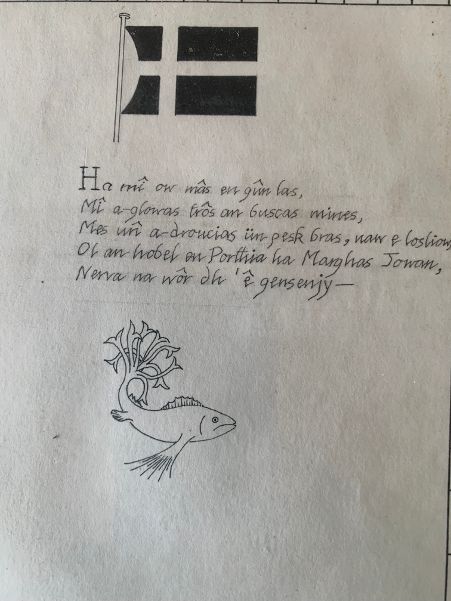 Ha mî ow mâs en gûn las,
Mî a-glowas trôs an buscas mines,
Mes mî a-droucias ün pesk bras, naw e lostiow,
Ol an bobel en Porthia ha Marghas Jowan,
Nerva na wôr dh 'ê gensenjy—